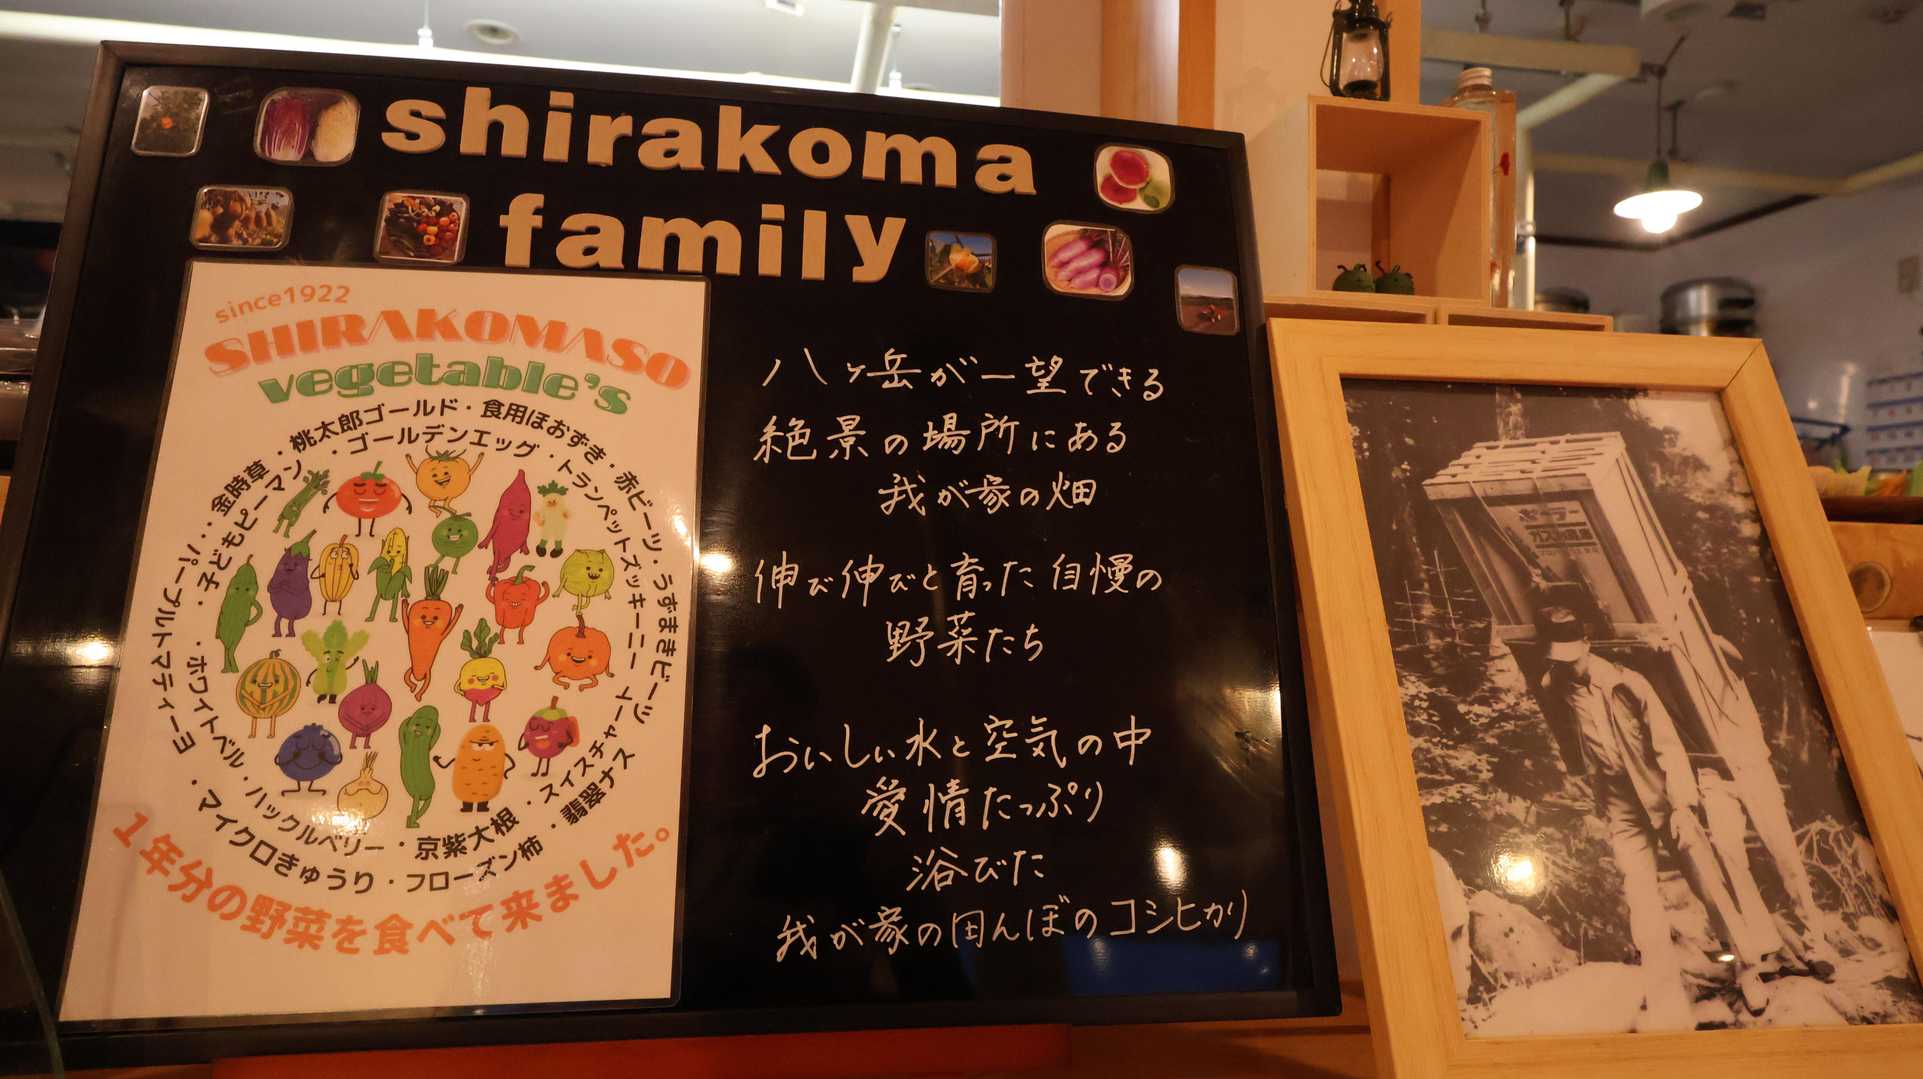 shirakoma
family
since1922
SHIRAKOMASO
vegetable's
・金時草・桃太郎ゴールド・食用ほおずき・赤ビーツ・うずまきビーツ
・パープルトマティーヨ
・こどもピーマン・ゴールデンエッグ・トランペットズッキーニ
・ホワイトベル・ハックルベリー・京紫大根・スイスチャード
・マイクロきゅうり・フローズン柿・翡翠ナス
1年分の野菜を食べて来ました。
八ヶ岳が一望できる
絶景の場所にある
我が家の畑
伸び伸びと育った自慢の
野菜たち
おいしい水と空気の中
愛情たっぷり
浴びた
我が家の田んぼのコシヒカリ